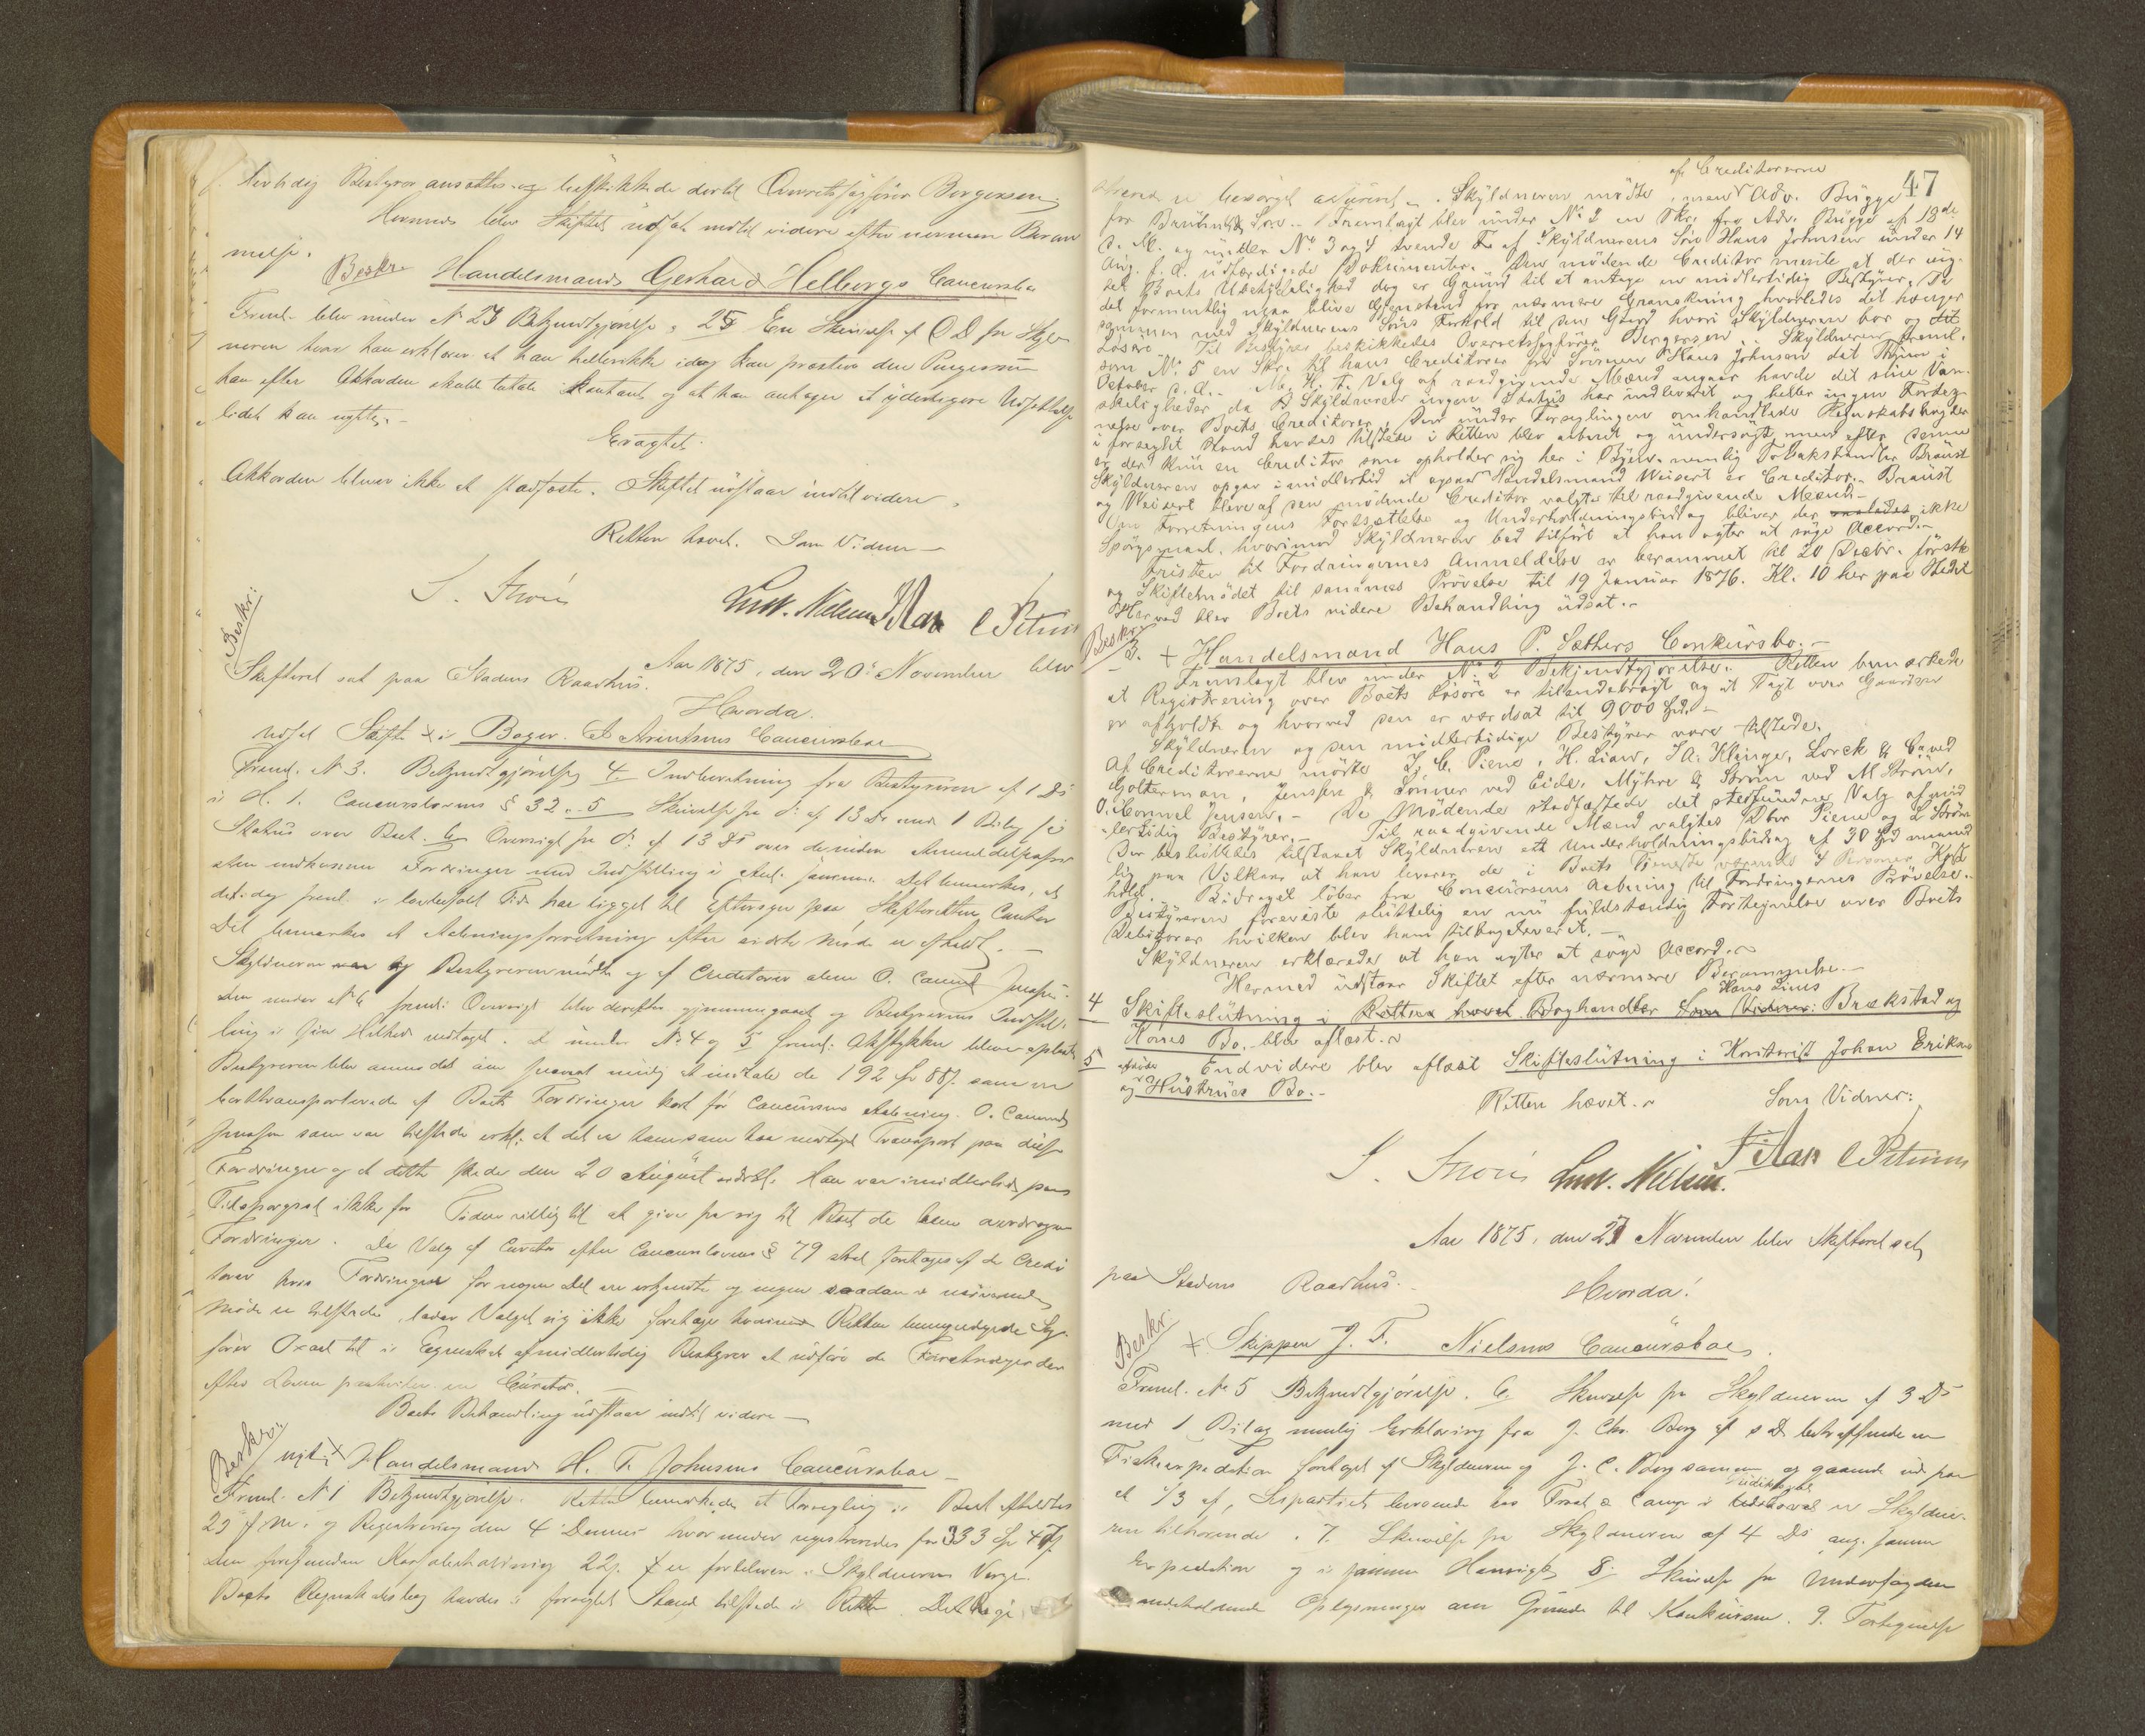 Bestyrer ansattes og beskikkede dertil Overretssagfører Borgersen
Hermed blev Skiftet udsat indtil videre efter nærmere Beram
melse.
Beskr. Handelsmand Gerhard Helbergs Concursbo
Freml. blev under N. 24 Bekjendtgjørelse, 25 En Skrivelse af C D fra Skyld
neren hvor han erklærer at han hellerikke idag kan præstere den Pengesum
han efter Akkorden skulde betale kontant og at han antager at yderligere Udsættelse
lidet kan nytte.-
Eragtet.
Akkorden bliver ikke at stadfæste. Skiftet udstaar indtil videre.
Retten hævet. Som Vidner
Ludv. Nielsen C Petersen
Beskr:
Aar 1875, den 20de November blev
Skifteret sat paa Stadens Raadhus.
Hvorda.
udsat Skifte i Bager Arentsens Concursboe
Freml. N. 3. Bekjendtgjørelse, 4 Indberetning fra Bestyreren af 1 Ds
i H. t. Concurslovens § 32. 5 Skrivelse fra d: af 13 Ds med 1 Bilag
Status over Boet. 6 Oversigt fra d: af 13 Ds over de inden Anmeldelsesfri
sten indkomne Fordringer med Indstilling i Anl. samme. Det bemærkes, at
det idag freml. i lovbefalet Tid har ligget til Eftersyn paa Skifterettens Contor
Det bemærkes at Aabningsforretning efter sidste Møde er afholdt.
Skyldneren og Bestyreren mødte og af Creditorer alene O. Conrad Jenssen.
Den under N. 6 freml: Oversigt blev derefter gjennemgaaet og Bestyrerens Indstil-
ling i sin Helhed vedtaget. De under N. 4 og 5 freml: Aktstykker bleve oplæste
Bestyreren blev anmodet om snarest mulig at indtale de 192 Sp 88 s. som er
borttransporterede af Boets Fordringer kort før Concursens Aabning. O. Conrad
Jenssen som var tilstede erkl. at det er ham som har modtaget Transport paa disse
Fordringer og at dette skede den 20 August sidstl. Han var imidlertid paa
Tilspørgsel ikke for Tiden villig til at give fra sig til Boet de ham overdragne
Fordringer. Da Valg af Curator efter Concurslovens § 79 skal foretages af de Credi
torer hvis Fordringer for nogen Del ere erkjendte og ingen saadan i nærværende
Møde er tilstede, lader Valget sig ikke foretage hvorimod Retten bemyndigede Sag-
fører Oxaal til i Egenskab af midlertidig Bestyrer at udføre de Forretninger der
efter Loven paahviler en Curator.
Boets Behandling udstaar indtil videre
Beskr. nyt: Handelsmand H. T. Johnsens Concursboe
Freml. N 1 Bekjendtgjørelse. Retten bemærkede at Forsegling i Boet afholdtes
23 f. M. og Registrering den 4 Dennes hvorunder registreredes for 333 Sp 47 s.
Den forefundne Kassebeholdning 22 s. er forbleven i Skyldnerens Værge.
Boets Regnskabsbøg havdes i forseglet Stand tilstede i Retten.
47
af Creditorerne
besørget adv. Skyldneren mødte, men Adv. Brügge
for Søn. Fremlagt blev under No 2 en Skr. fra Adv. Brügge af 18de
d. M. og under No 3 og 4 tvende af Skyldnerens Søn Hans Johnsen under 14
Aug. f. A. udfærdigede Dokumenter. Den mødende Creditor mente at der uag-
tet Boets Ubetydelighed dog er Grund til at antage en midlertidig Bestyrer, da
det formentlig maa blive Gjenstand for nærmere Granskning hvorledes det hænger
sammen med Skyldnerens Søns Forhold til den Gaard hvori Skyldneren bor og
Løsøre. Til Bestyrer beskikkedes Overretssagfører Borgersen. Skyldneren freml.
som No 5 en Skr. til hans Creditorer fra Sønnen Hans Johnsen dat Thjem i
October d. A. M. H. t. Valg af raadgivende Mænd angaar havde det sine Van-
skeligheder da Skyldneren ingen Status har indleveret og heller ingen Forteg-
nelse over Boets Creditorer. Den under Forseglingen omhandlede Regnskabsbog der
i forseglet Stand havdes tilstede i Retten blev aabnet og undersøgt, men efter denne
er der kun en Creditor som opholder sig her i Byen, nemlig Tobakshandler Braust
Skyldneren opgav imidlertid at ogsaa Handelsmand Weisert er Creditor. Braust
og Weisert bleve af den mødende Creditor valgte til raadgivende Mænd.-
Om Forretningens Fortsættelse og Underholdningsbidrag bliver der ikke
Spørgsmaal, hvorimod Skyldneren bad tilført at han agter at søge Accord.
Fristen til Fordringernes Anmeldelse er berammet til 20 Decbr. førstk
og Skiftemødet til sammes Prøvelse til 19 Januar 1876. Kl. 10 her paa Stedet
Hermed blev Boets videre Behandling udsat.-
Beskr. 3. + Handelsmand Hans P. Sæthers Concursbo.-
Fremlagt blev under No 2 Bekjendtgjørelse. Retten bemærkede
at Registrering over Boets Løsøre er tilendebragt og at Taxt over Gaarden
er afholdt og hvorved den er værdsat til 9000 Spd.-
Skyldneren og den midlertidige Bestyrer vare tilstede.
Af Creditorerne mødte J. C. Piene, H. Lian, I. A. Klinge, Lorck & Co ved
Golterman, Jenssen & Sønner ved Eide, Myhre & Strøm ved M Strøm,
O. Conrad Jensen.- De Mødende stadfæstede det stedfundne Valg af mid
lertidig Bestyrer.- Til raadgivende Mænd valgtes Dhr Piene og L Strøm
Der besluttedes tilstaaet Skyldneren ett Underholdningsbidrag af 30 Spd maaned
lig paa Vilkaar at han leverer de i Boets Tjeneste værende 4 Personer Kost
hold. Bidraget løber fra Concursens Aabning til Fordringernes Prøvelse.
Bestyreren foreviste sluttelig en nu fuldstændig Fortegnelse over Boets
Debitorer hvilken blev ham tilbageleveret.-
Skyldneren erklærede at han agter at søge Accord.
Hermed udstaar Skiftet efter nærmere Berammelse.-
Hans Linus
4 Skifteslutning i Retten hævet Boghandler Som Vidner: Brækstad og
Kones Bo. blev aflæst.
5 Endvidere blev aflæst Skifteslutning i Kontorist Johan Eriksen
og Hustrues Bo.-
Retten hævet. Som Vidner:
Ludv. Nielsen. C Petersen
Aar 1875, den 27 November blev Skifteret sat
paa Stadens Raadhus.
Hvorda!
Beskr. Skipper J. F. Nielsens Concursboe.
Freml. No 5 Bekjendtgjørelse. 6 Skrivelse fra Skyldneren af 3 Ds
med 1 Bilag nemlig Erklæring fra J. Chr. Borg af s D. betræffende en
Fiskeexpedition foretaget af Skyldneren og J. C. Borg sammen og gaaende ud paa
at 1/3 af er Skyldne-
ren tilhørende. 7. Skrivelse fra Skyldneren af 4 Ds ang. samme
Expedition og i samme Henseigt 8. Skrivelse fra
indeholdende Oplysninger om Grunden til Konkursen. 9. Fortegnelse